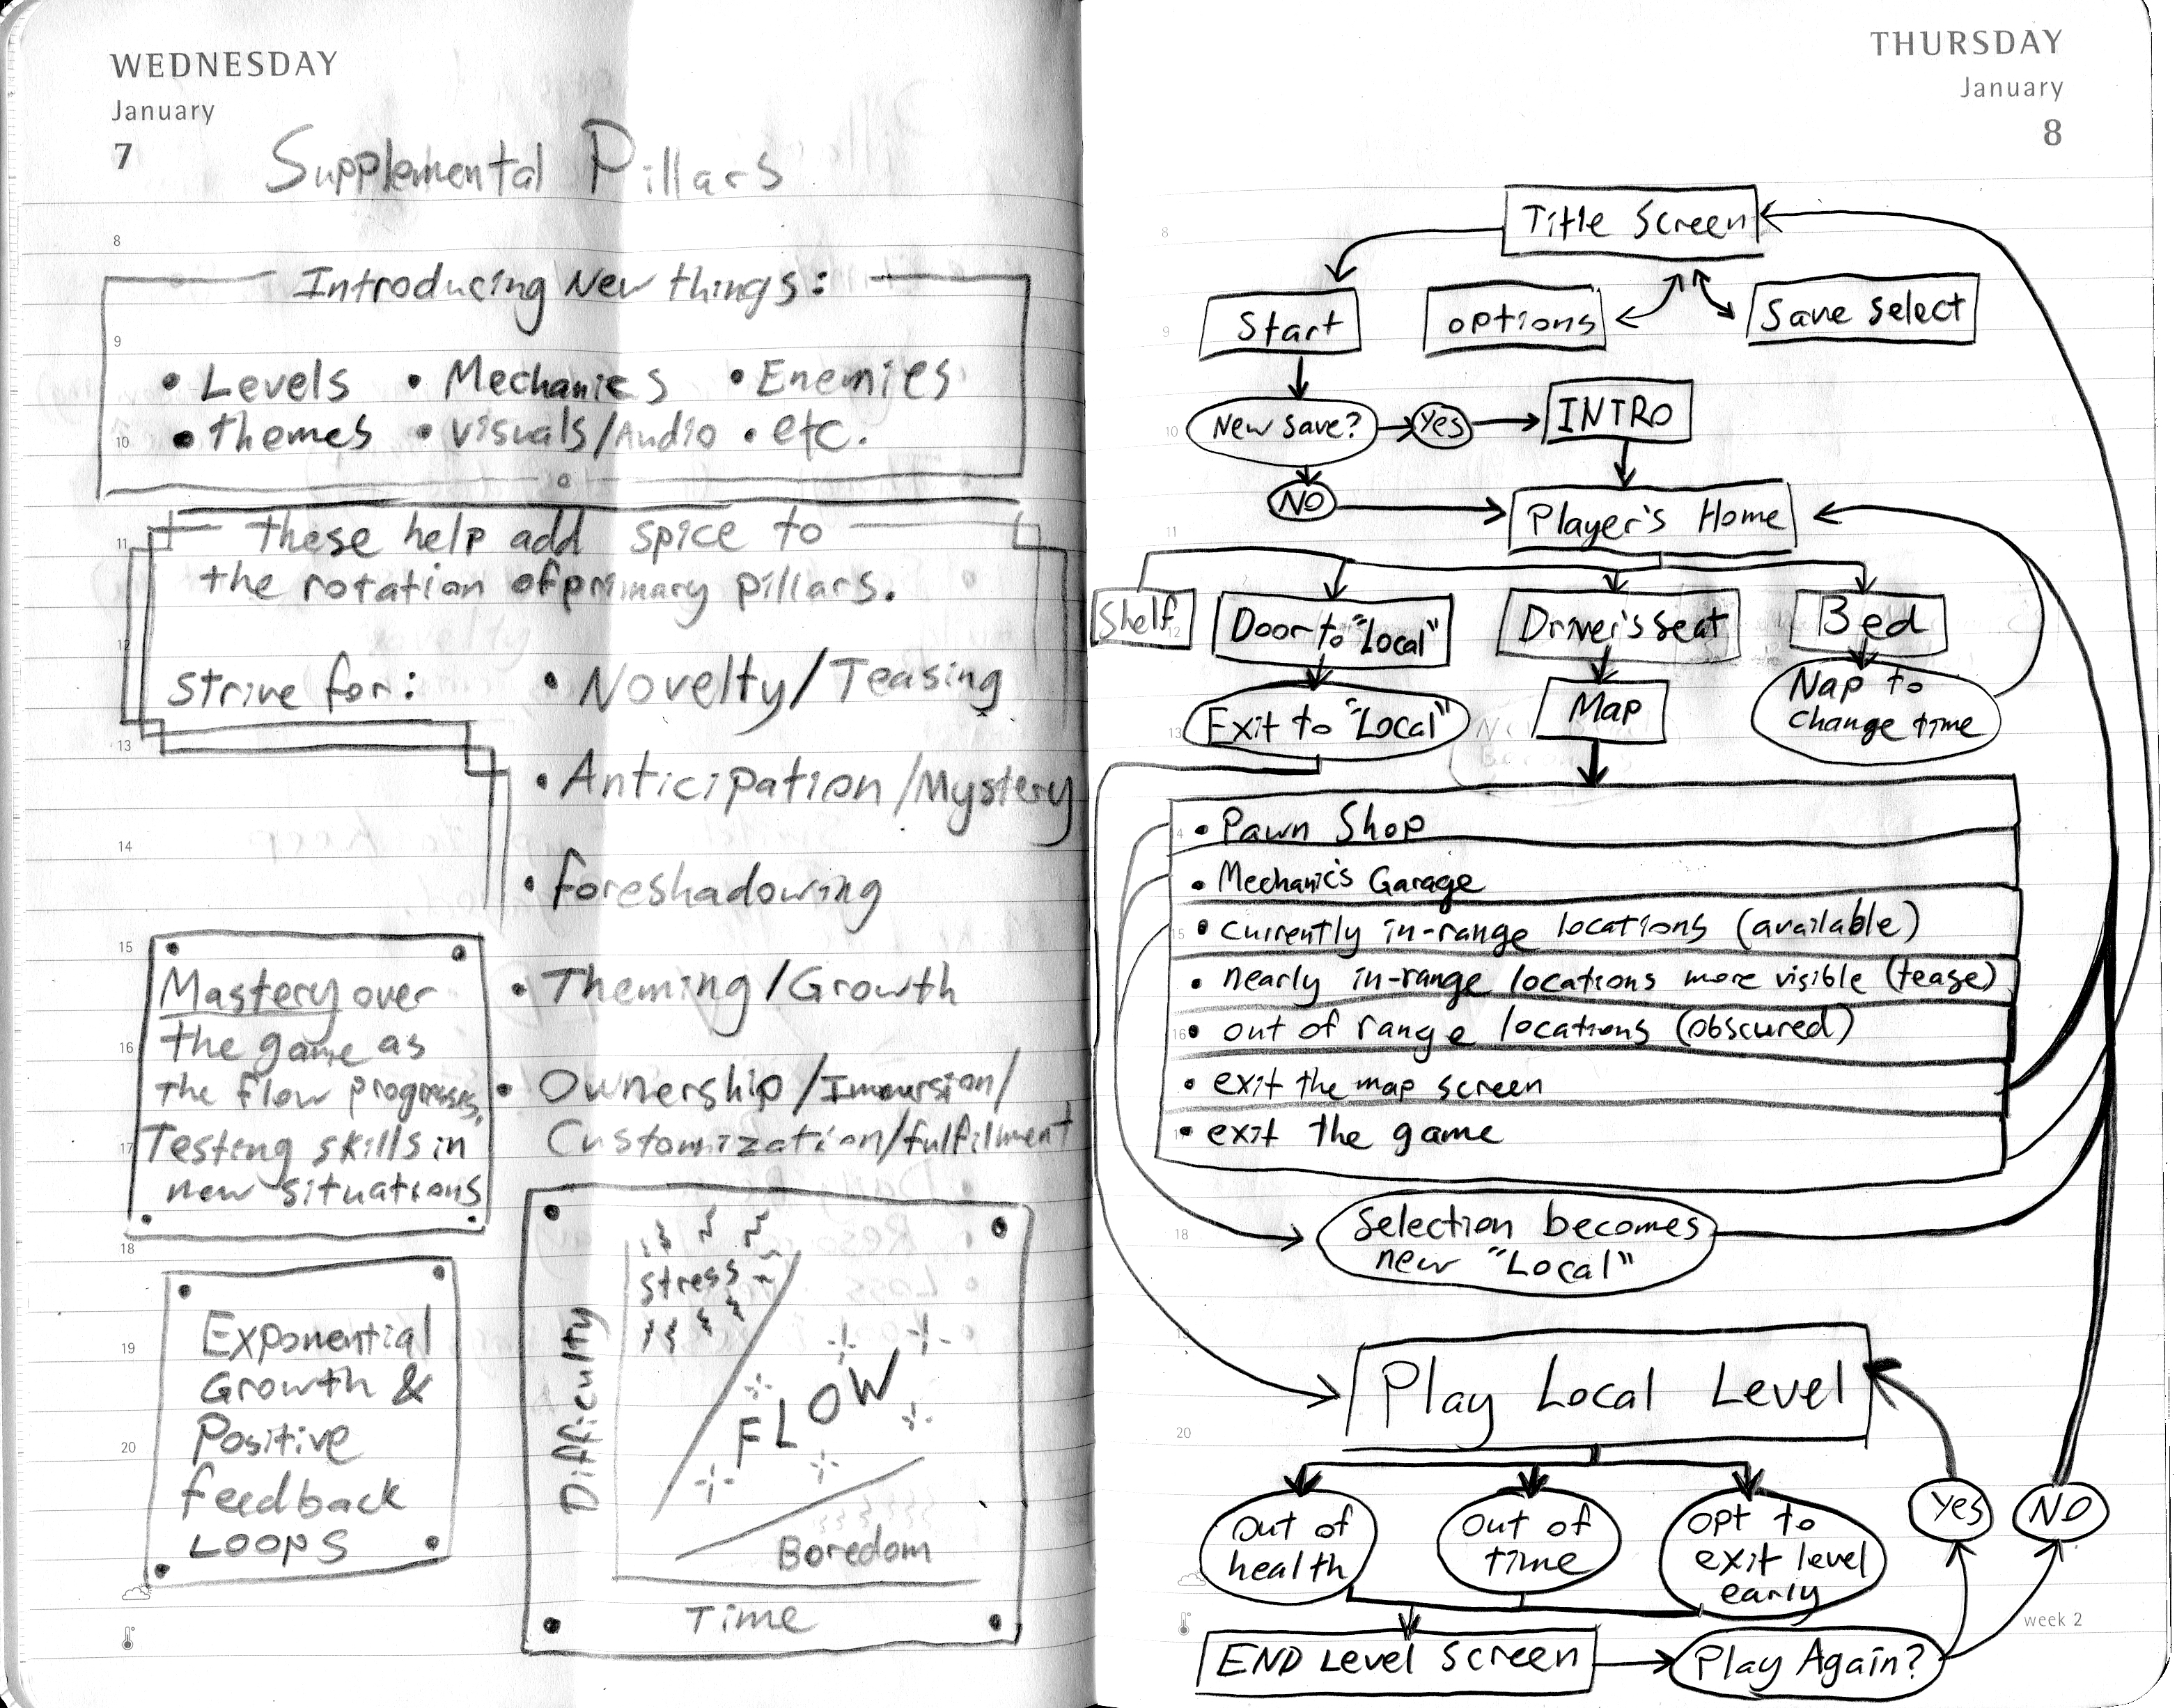 WEDNESDAY
January
7
Supplemental Pillars
8
Introducing New things:
9
• Levels • Mechanics • Enemies
10
• themes • visuals/Audio • etc.
11
these help add spice to
the rotation of primary pillars.
12
strive for:
• Novelty/Teasing
13
• Anticipation/Mystery
14
• foreshadowing
15
Mastery over
the game as
the flow progresses,
Testing skills in
new situations
16
17
• Theming/Growth
• Ownership/Immursion/
Customization/fulfilment
18
Exponential
Growth &
Positive
feedback
LOOPS
19
20
Difficulty
stress
FLOW
Boredom
Time
THURSDAY
January
8
8
Title Screen
9
Start
options
Save select
10
New save?
Yes
INTRO
NO
Player's Home
11
Shelf
12
Door to "Local"
Driver's seat
Bed
Exit to "Local"
Map
Nap to
change time
13
• Pawn Shop
• Mechanic's Garage
15
• currently in-range locations (available)
• nearly in-range locations more visible (tease)
16
• out of range locations (obscured)
• exit the map screen
• exit the game
18
Selection becomes
new "Local"
19
Play Local Level
20
Out of
health
Out of
time
opt to
exit level
early
Yes
NO
week 2
END Level Screen
Play Again?